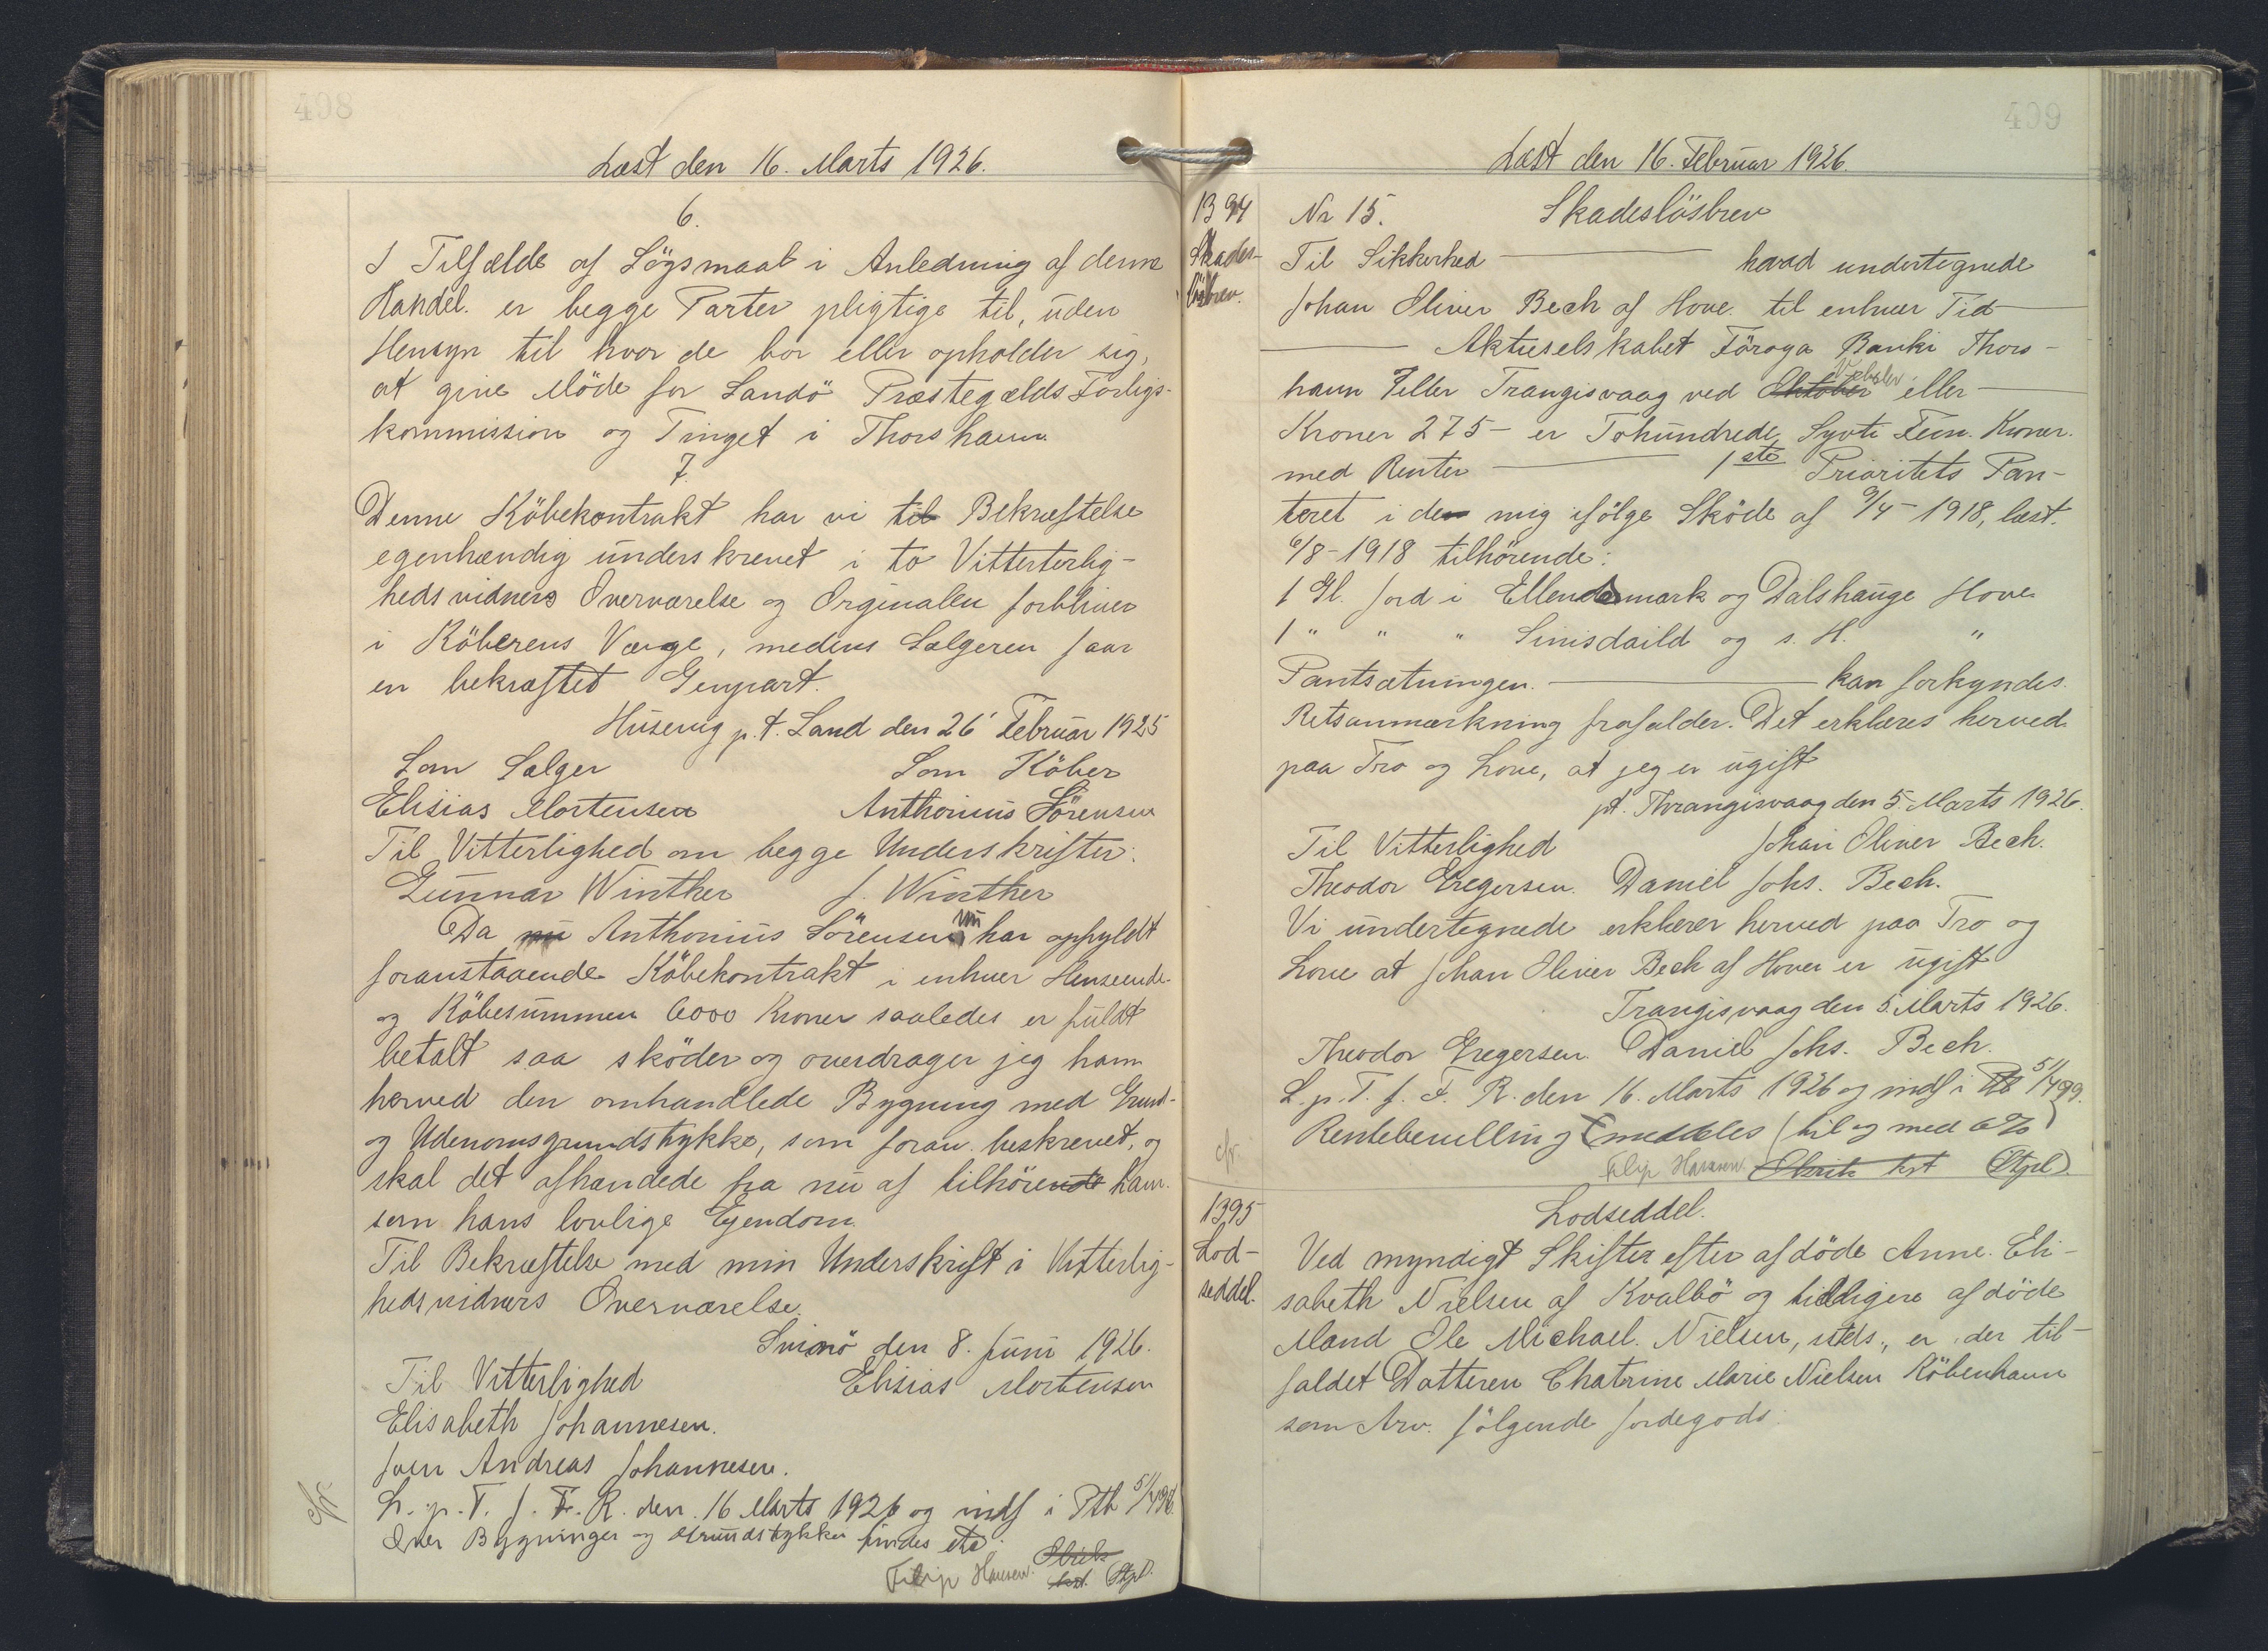 498
Læst den 16. Marts 1926.
6.
I Tilfælde af Lögsmaal i Anledning af denne
Handel. er begge Parter pligtige til, uden
Hensyn til hvor de bor eller opholder sig,
at give Möde for Sandö Præstegælds Forligs-
kommission og Tinget i Thorshavn.
7.
Denne Köbekontrakt har vi til Bekræftelse
egenhændig underskrevet i to Vitterterlig-
hedsvidners Overværelse og Orginalen forbliver
i Köberens Værge, medens Sælgeren faar
en bekræftet Genpart.
Husevig p.t. Sand den 26' Februar 1925
Som Sælger Som Köber
Elisias Mortensen Anthonius Sörensen
Til Vitterlighed om begge Underskrifter:
Gunnar Winther J. Winther
Da nu Anthonius Sörensen nu har opfyldt
foranstaaende Köbekontrakt i enhver Henseende
og Köbesummen 6000 Kroner saaledes er fuldt
betalt saa sköder og overdrager jeg ham
herved den omhandlede Bygning med Grund-
og Udenomsgrundstykke, som foran beskrevet, og
skal det afhændede fra nu af tilhörende ham.
som hans lovlige Ejendom.
Til Bekræftelse med min Underskrift i Vitterlig-
hedsvidners Overværelse.
den 8. Juni 1926.
Til Vitterlighed Elisias Mortensen
Elisabeth Johannesen.
Joen Andreas Johannesen.
cfr.
L. p. T. f. F. R. den 16 Marts 1926 og indf i Ptb 51/498
Over Bygninger og Grundstykker findes etc.
Filip Hansen. kst. (Stpl).
499
Læst den 16. Februar 1926.
1394
Skades-
lösbrev.
Nr 15. Skadeslösbrev
Til Sikkerhed hvad undertegnede
Johan Oliver Bech af Hove. til enhver Tid
Aktieselskabet Föroya Banki Thors-
havn eller Trangisvaag ved Oktober Veksler eller
Kroner 275- er Tohundrede Syvti Fem. Kroner.
med Renter 1ste Prioritets Pan-
teret i den mig ifölge Sköde af 9/4-1918, læst.
6/8-1918 tilhörende:
1 Gl. Jord i Ellendemark og Dalshauge Hove
1 " " " Sinisdaild og s. H. "
Pantsætningen. kan forkyndes.
Retsanmærkning frafalder. Det erklæres herved
paa Tro og Love, at jeg er ugift
pt. Thrangisvaag den 5. Marts 1926.
Til Vitterlighed Johan Oliver Bech.
Theodor Gregersen. Daniel Johs. Bech.
Vi undertegnede erklærer herved paa Tro og
Love at Johan Oliver Bech af Hover er ugift
Trangisvaag den 5. Marts 1926.
Theodor Gregersen. Daniel Johs. Bech.
L. p. T. f. F. R. den 16. Marts 1926 og indf i Ptb 51/499.
cfr.
Rentebevilling meddeles (til og med 6%)
Filip Hansen. kst (Stpl).
1395
Lod-
seddel.
Lodseddel.
Ved myndigt Skifte efter afdöde Anne Eli-
sabeth Nielsen af Kvalbö og tidligere afdöde
Mand Ole Michael Nielsen, stds., er der til-
faldet Datteren Chatrine Marie Nielsen Köbenhavn
som Arv. fölgende Jordegods: